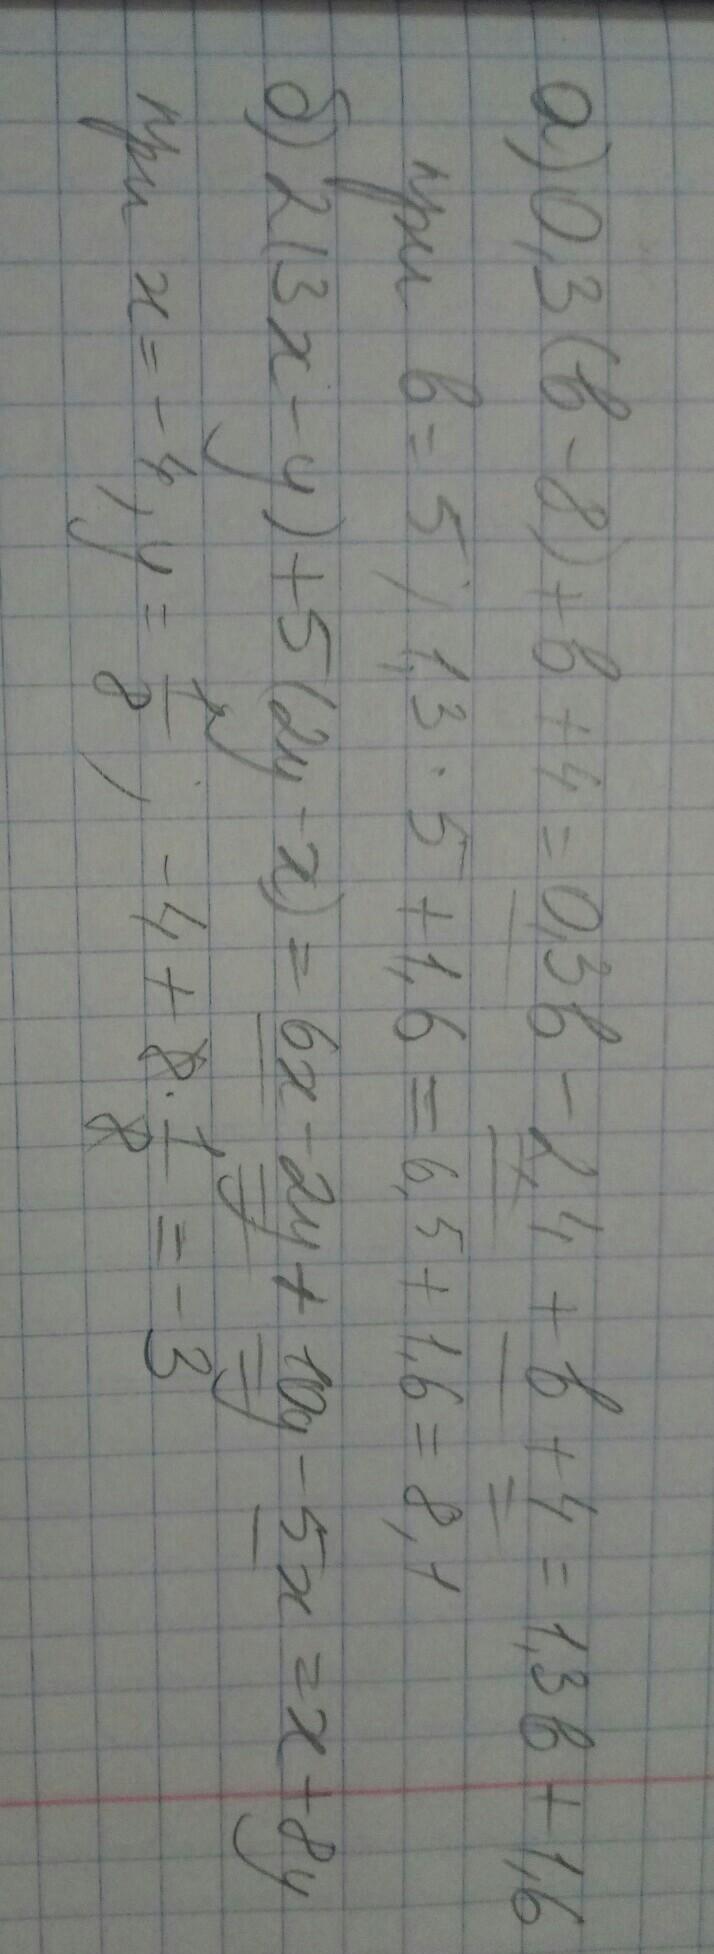 а) 0,3(в-8)+в+4=0,3в-2,4+в+4=1,3в+1,6
при в=5; 1,3·5+1,6=6,5+1,6=8,1
б) 2(3x-y)+5(2y-x)=6x-2y+10y-5x=x+8y
при x=-4, y=1/8; -4+8·1/8=-3